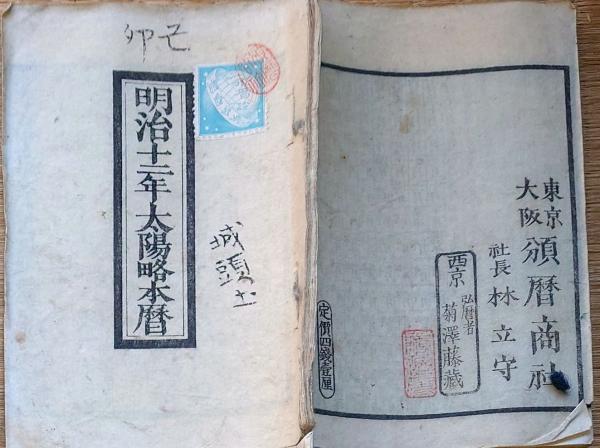 己卯
明治十二年太陽略本暦
城頭土
東京
大阪
頒暦商社
社長 林立守
西京 弘暦者 菊澤藤藏
定價四錢壹厘